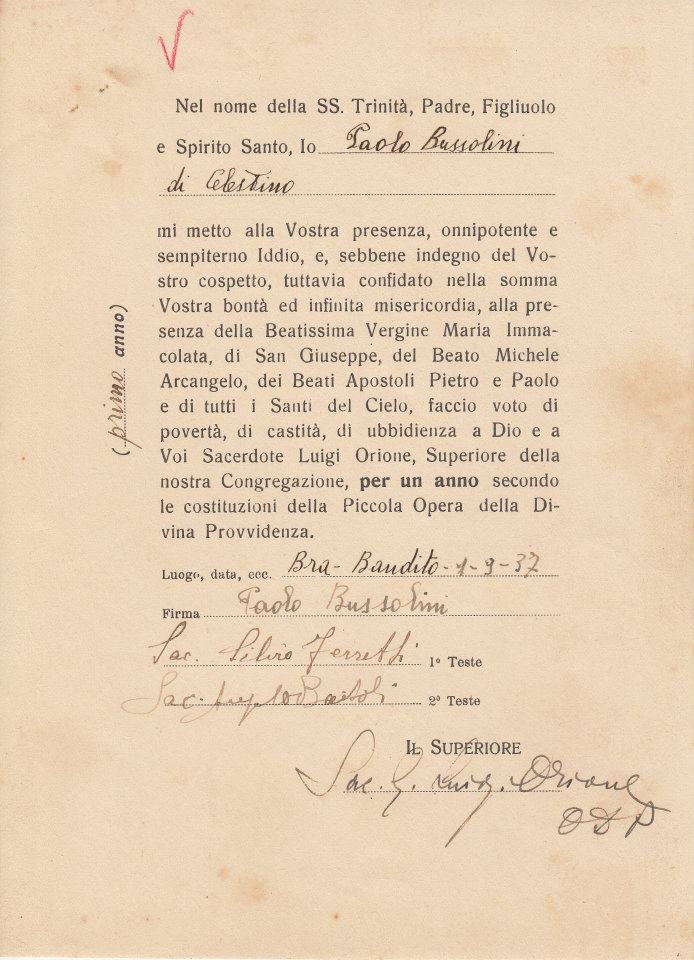 Nel nome della SS. Trinità, Padre, Figliuolo
e Spirito Santo, Io Paolo Bussolini
di Celestino
mi metto alla Vostra presenza, onnipotente e
sempiterno Iddio, e, sebbene indegno del Vo-
stro cospetto, tuttavia confidato nella somma
Vostra bontà ed infinita misericordia, alla pre-
senza della Beatissima Vergine Maria Imma-
colata, di San Giuseppe, del Beato Michele
Arcangelo, dei Beati Apostoli Pietro e Paolo
e di tutti i Santi del Cielo, faccio voto di
povertà, di castità, di ubbidienza a Dio e a
Voi Sacerdote Luigi Orione, Superiore della
nostra Congregazione, per un anno secondo
le costituzioni della Piccola Opera della Di-
vina Provvidenza.
(primo anno)
Luogo, data, ecc. Bra - Bandito - 1 - 9 - 37
Firma Paolo Bussolini
Sac. Silvio Ferretti 1º Teste
Sac. Angelo Bartoli 2º Teste
IL SUPERIORE
Sac. G. Luigi Orione
ODP